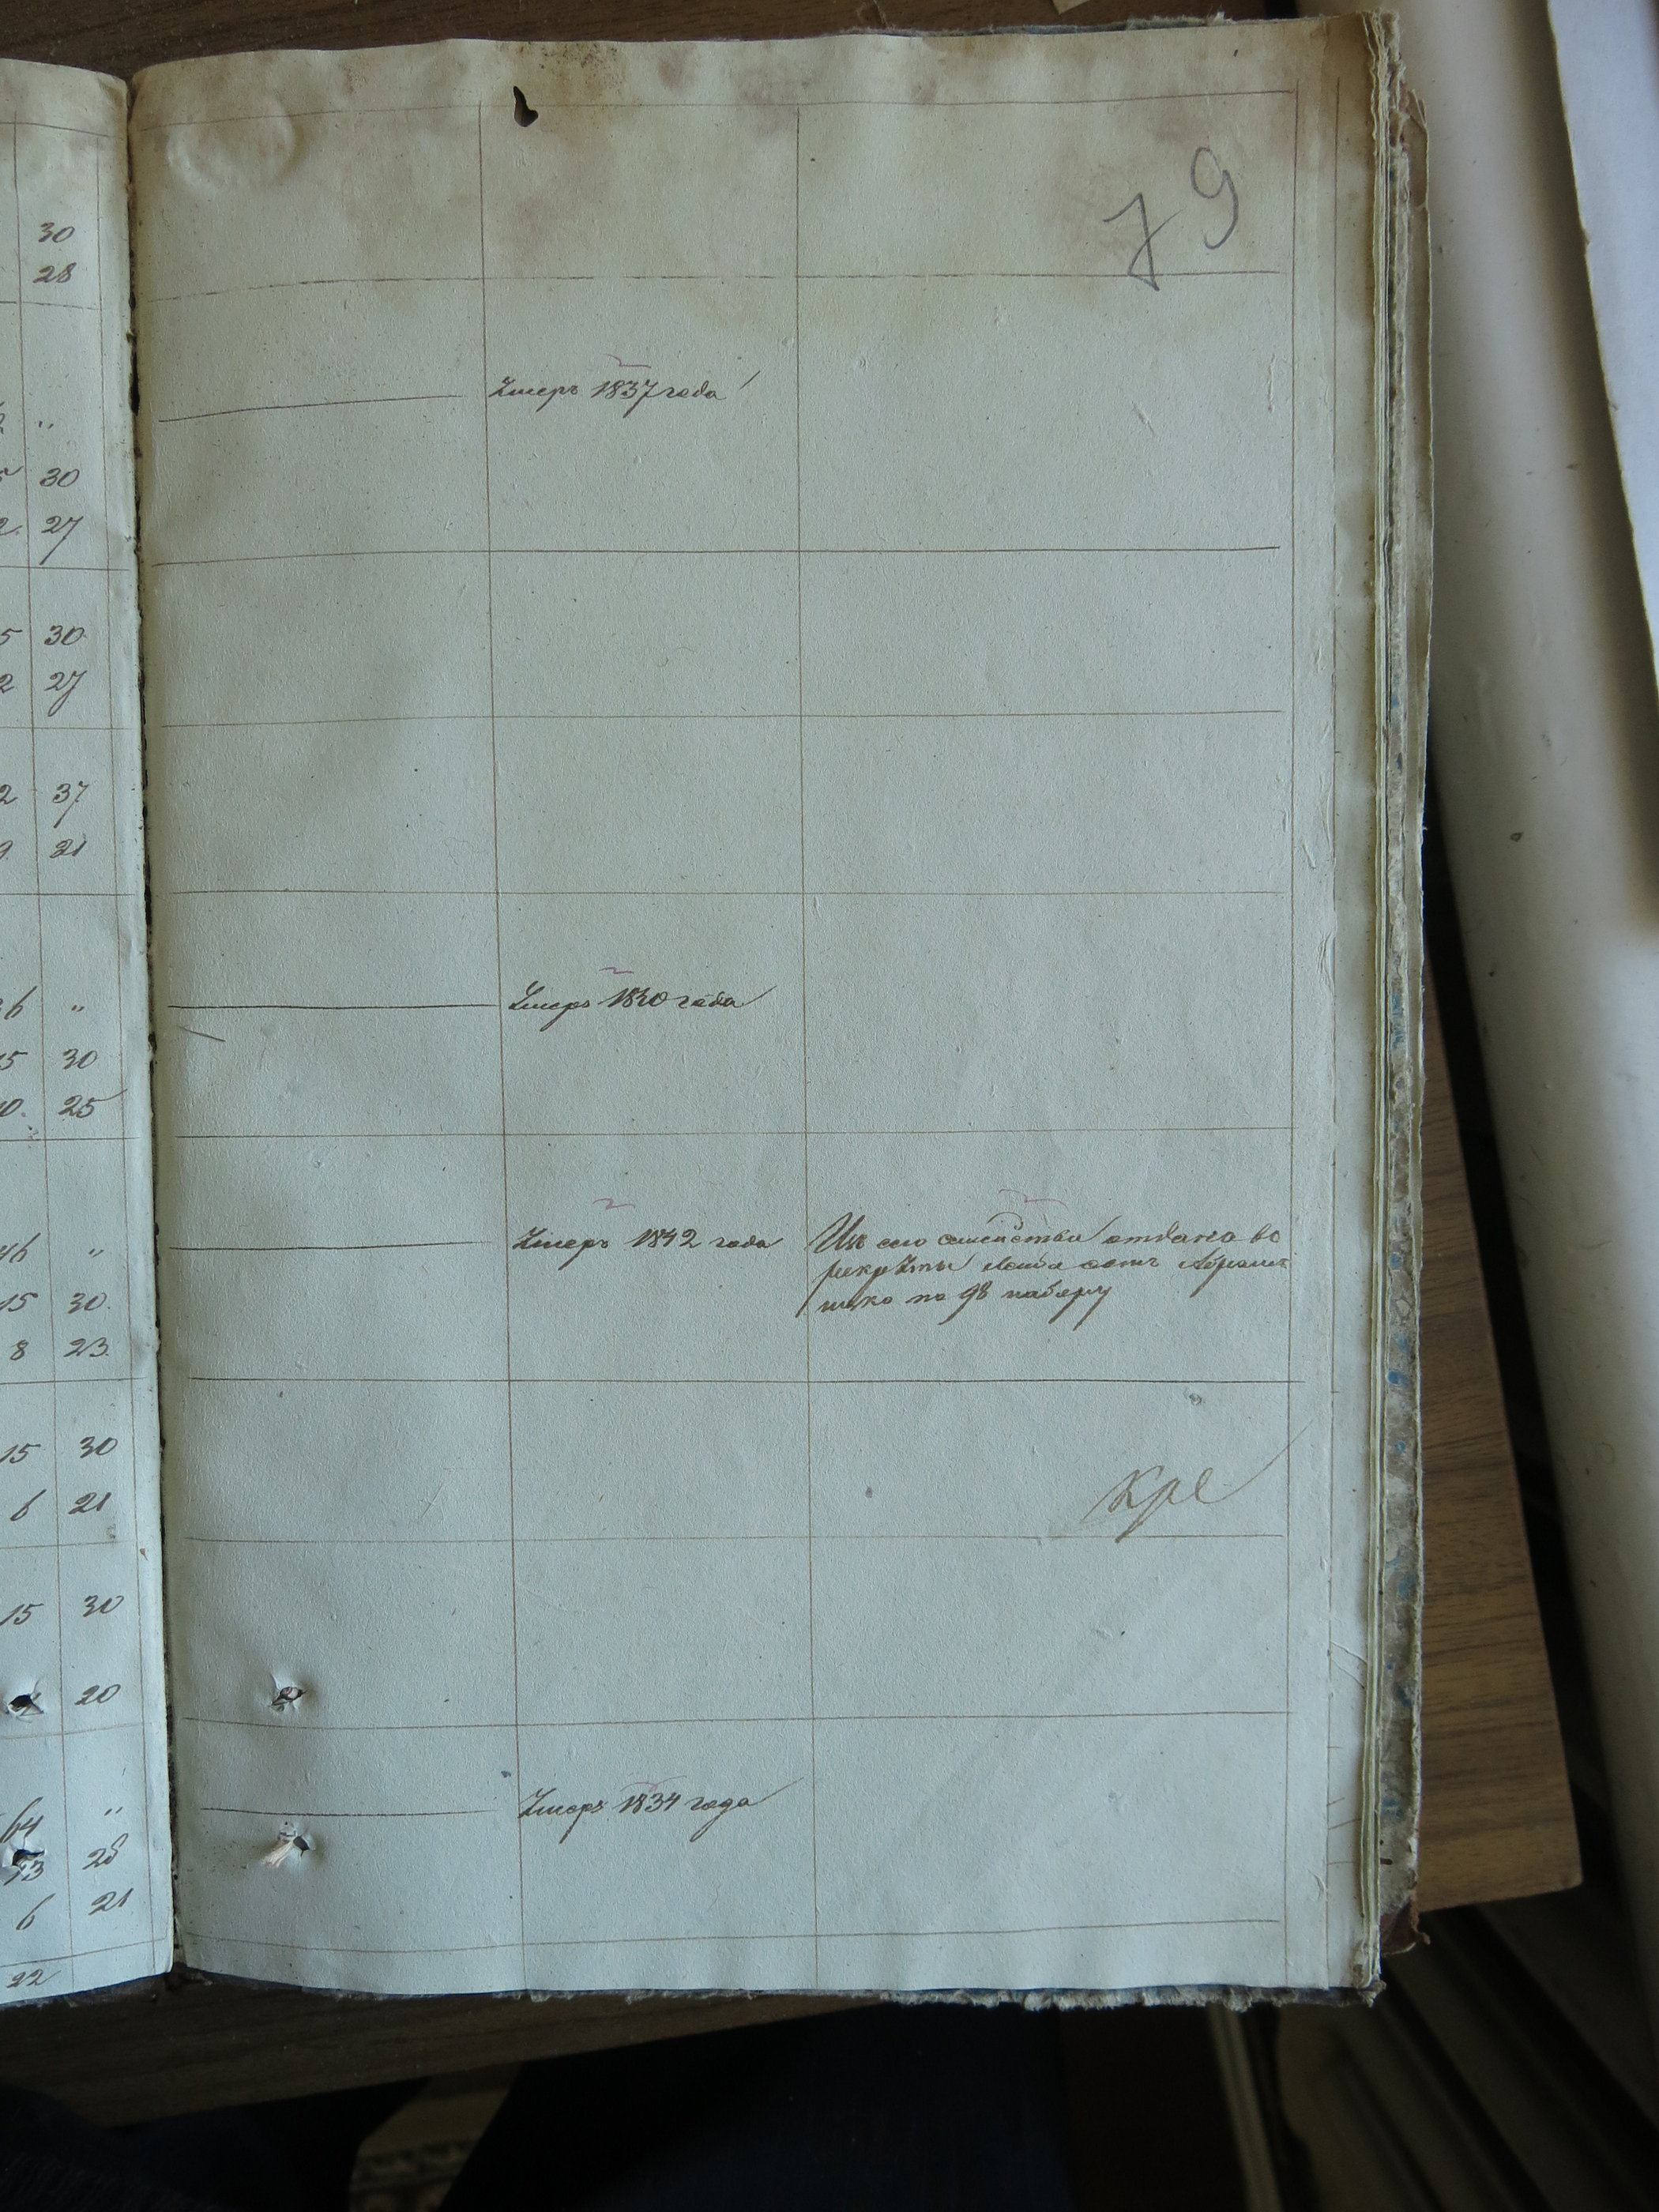 79
30
28
Умеръ 1837 года
30
27
5 30
2 27
2 37
21
6 „
Умеръ 1840 года
15 30
25
46 „
Умеръ 1842 года Изъ сего семейства отдано во
рекруты
по 98 набору
15 30
8 23
15 30
6 21
Кре
15 30
20
64 „
Умеръ 1834 года
13 28
6 21
22